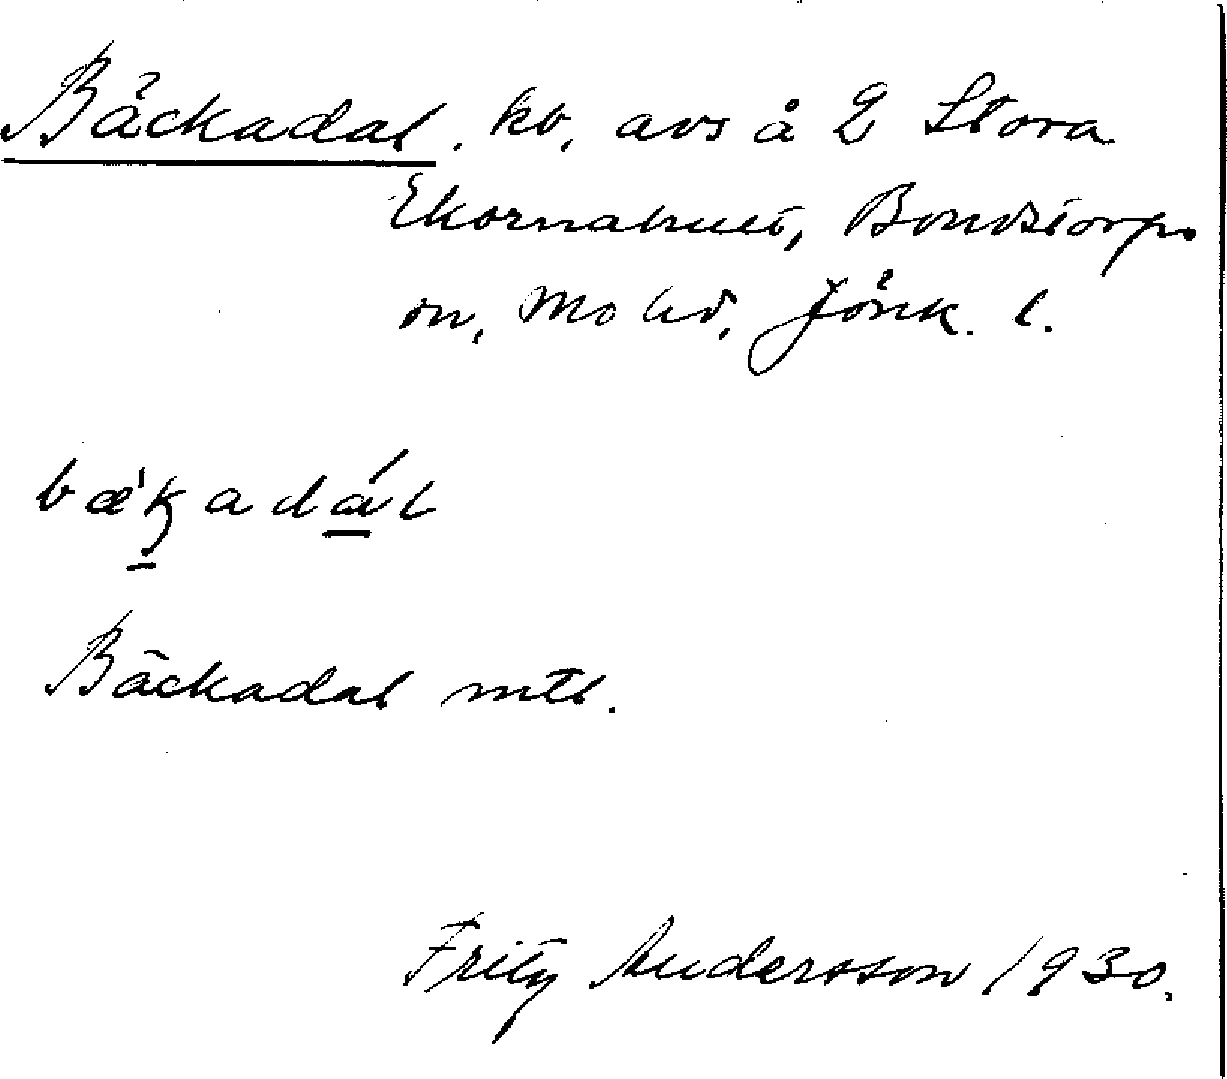 Bäckadal. avs å 2 Stora
Ekornahult, Bondstorps
sn, Mo hd, Jönk. l.
bæ̀kadál
Bäckadal mtl.
Fritz Andersson 1930.